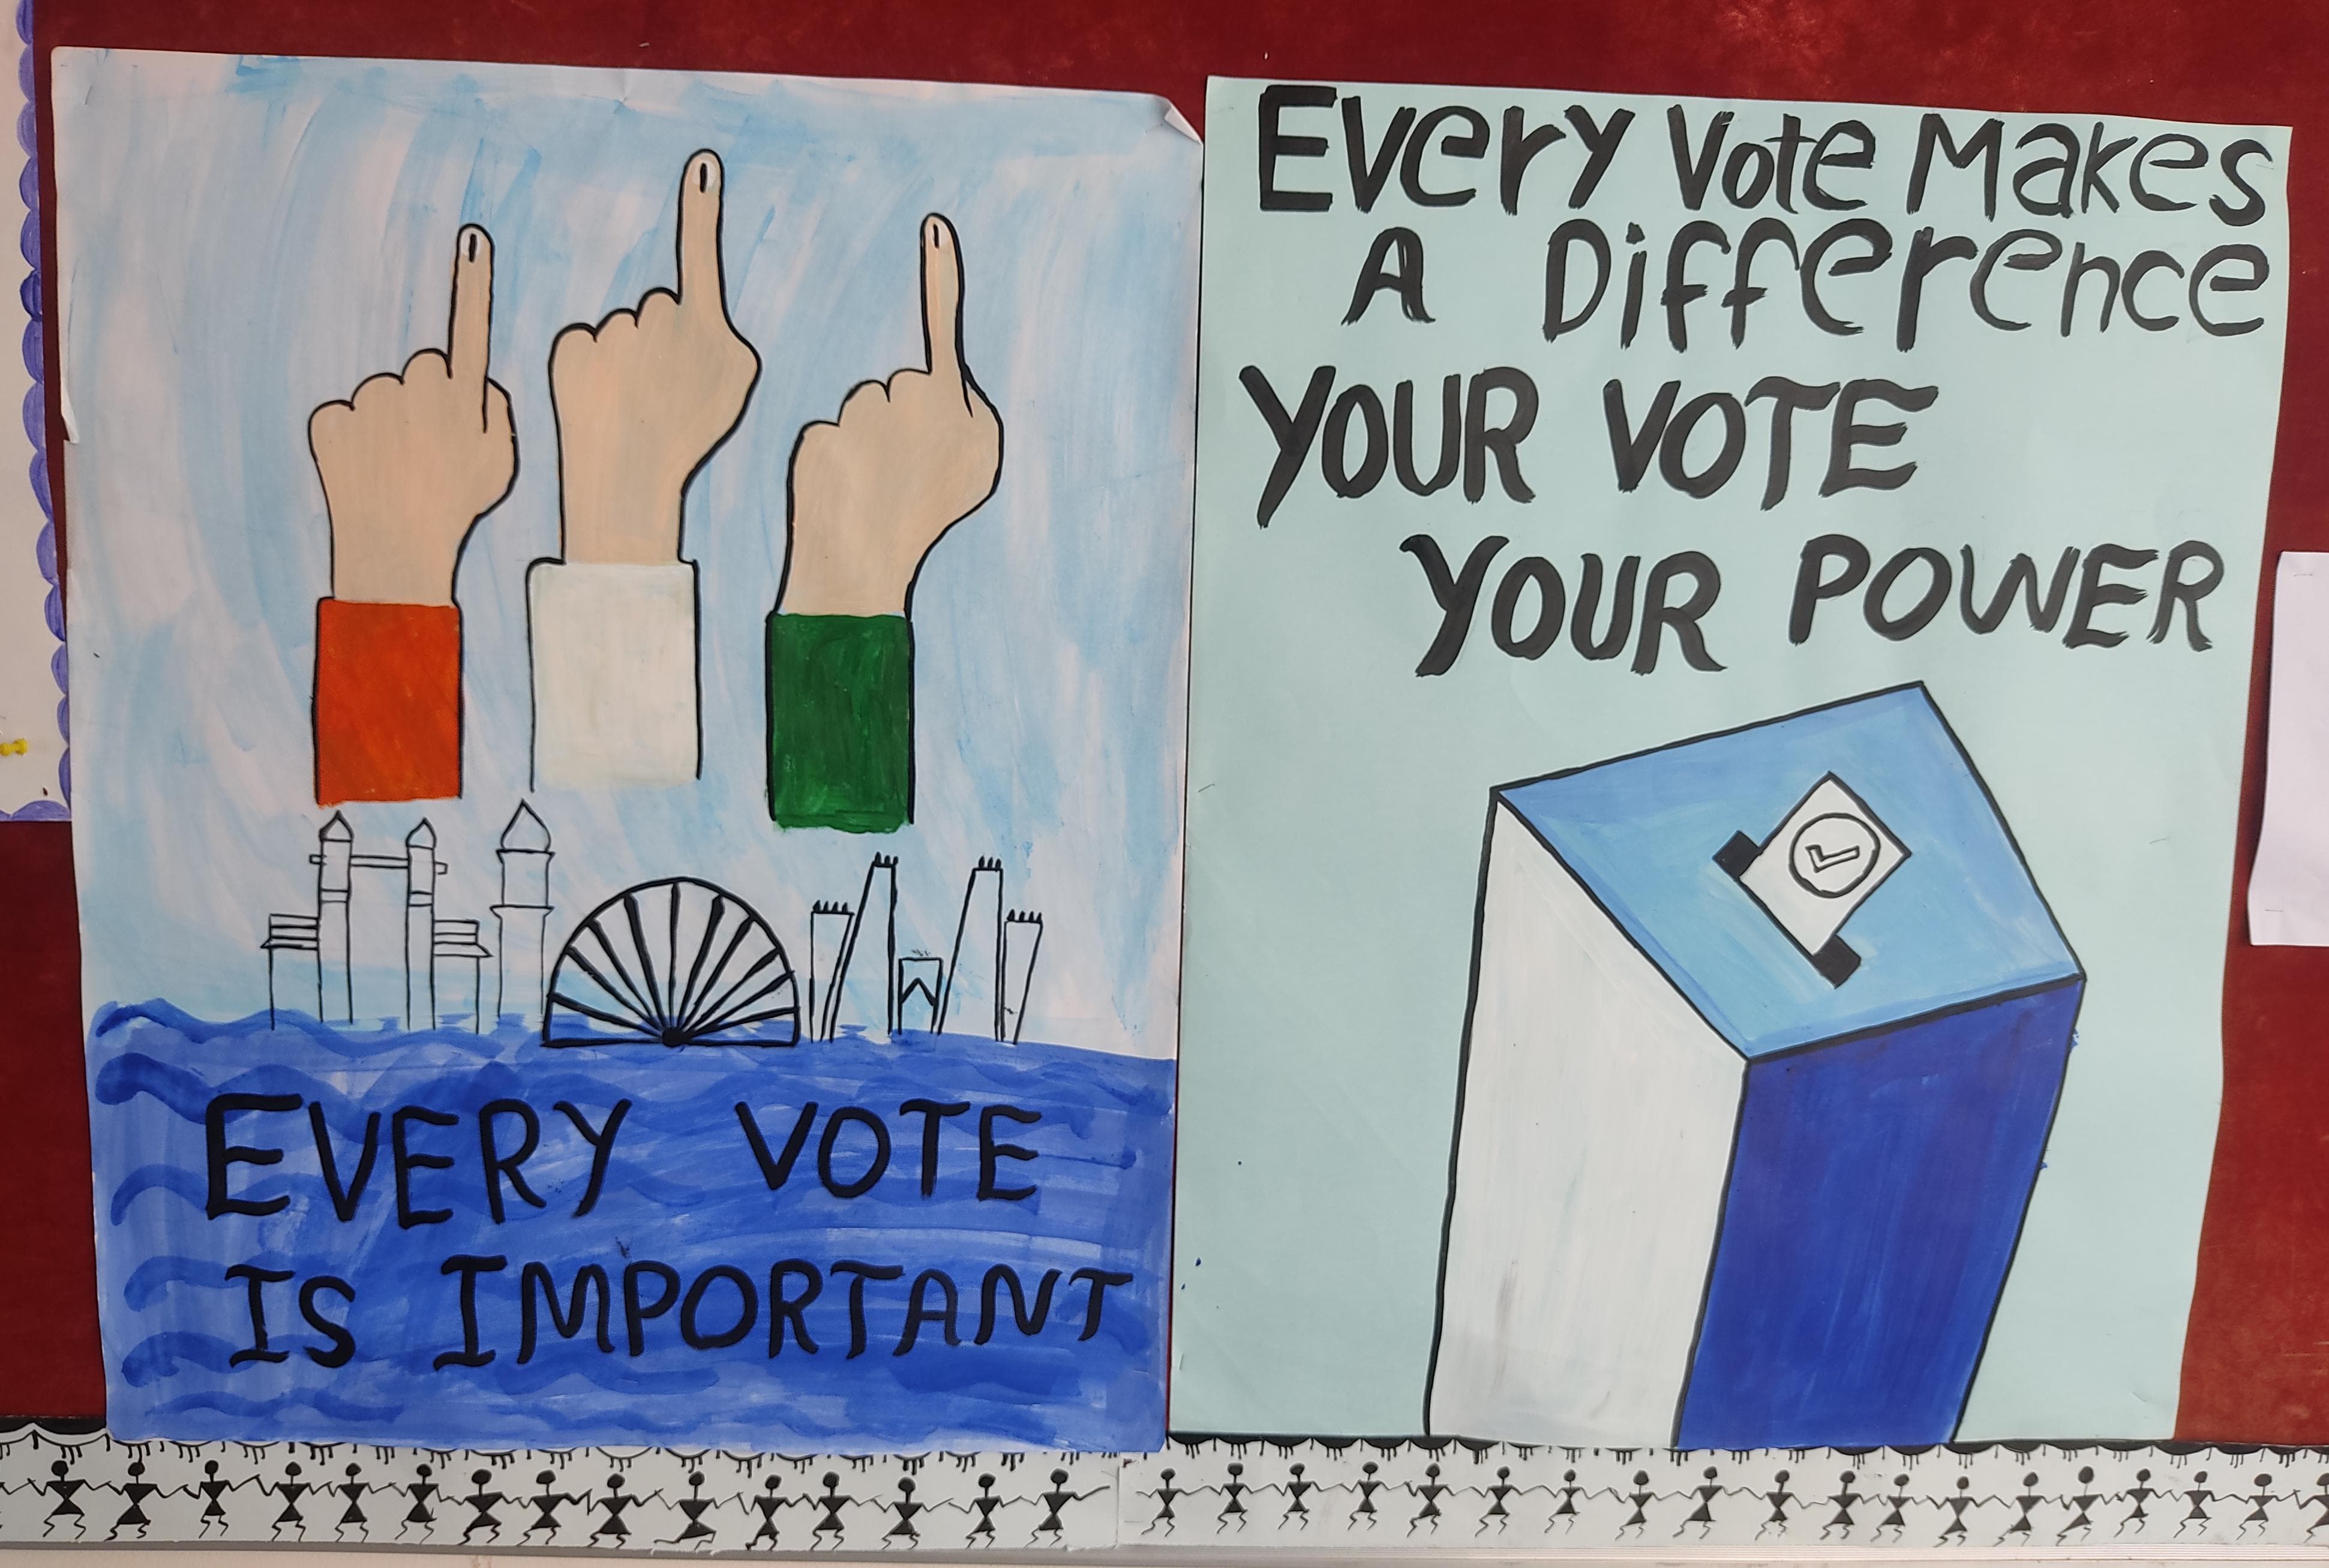 EVERY VOTE
IS IMPORTANT
Every Vote Makes
A Difference
YOUR VOTE
YOUR POWER